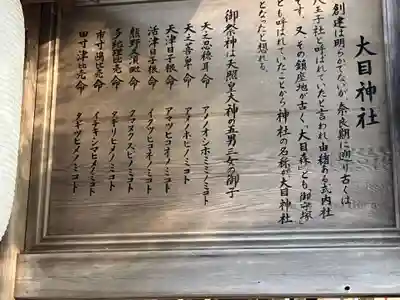 大目神社
創建は明らかでないが奈良期に遡り古くは、
八王子社と呼ばれていたと言われ、由緒ある式内社
です。又、その鎮座地が古く「大目森」とも「御守塚」
とも呼ばれていたことから神社の名称が大目神社
となったと想われる。
御祭神は天照皇大神の五男三女の御子
天之忍穂耳命 アメノオシホミミノミコト
天之菩卑命 アメノホヒノミコト
天津日子根命 アマツヒコネノミコト
活津日子根命 イクツヒコネノミコト
熊野久須毘命 クマヌクスビノミコト
多紀理比売命 タキリヒメノミコト
市寸嶋比売命 イチキシマヒメノミコト
田寸津比売命 タギツヒメノミコト